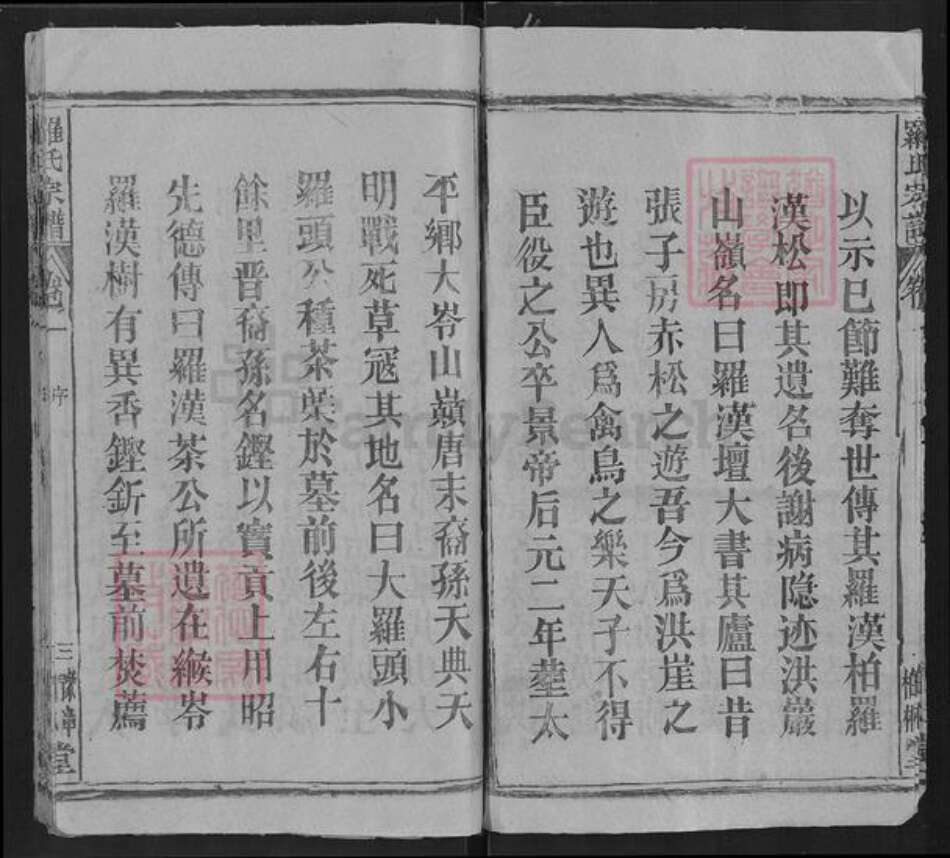 以示已節難奪世傳其羅漢柏羅
漢松即其遺名後謝病隐迹洪巖
山嶺名曰羅漢壇大書其廬曰昔
張子房赤松之遊吾今爲洪崖之
遊也異人爲禽鳥之樂天子不得
臣役之公卒景帝后元二年塟太
平鄉大岺山巔唐末裔孫天典天
明戰死草冦其地名曰大羅頭小
羅頭公種茶槩於墓前後左右十
餘里晋裔孫名鏗以實貢上用昭
先德傳曰羅漢茶公所遺在緱岺
羅漢樹有異香鏗釿至墓前焚薦
羅氏宗譜 卷一 序 三 豫章堂